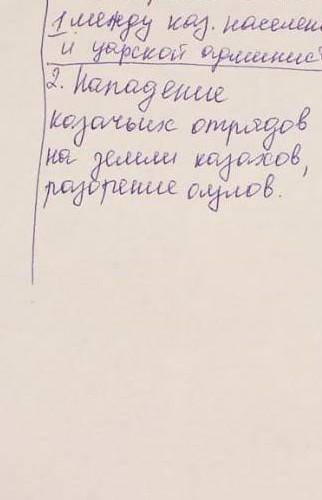 1 между каз. населен
и царской админис
2. Нападение
казачьих отрядов
на земли казахов,
разорение аулов.